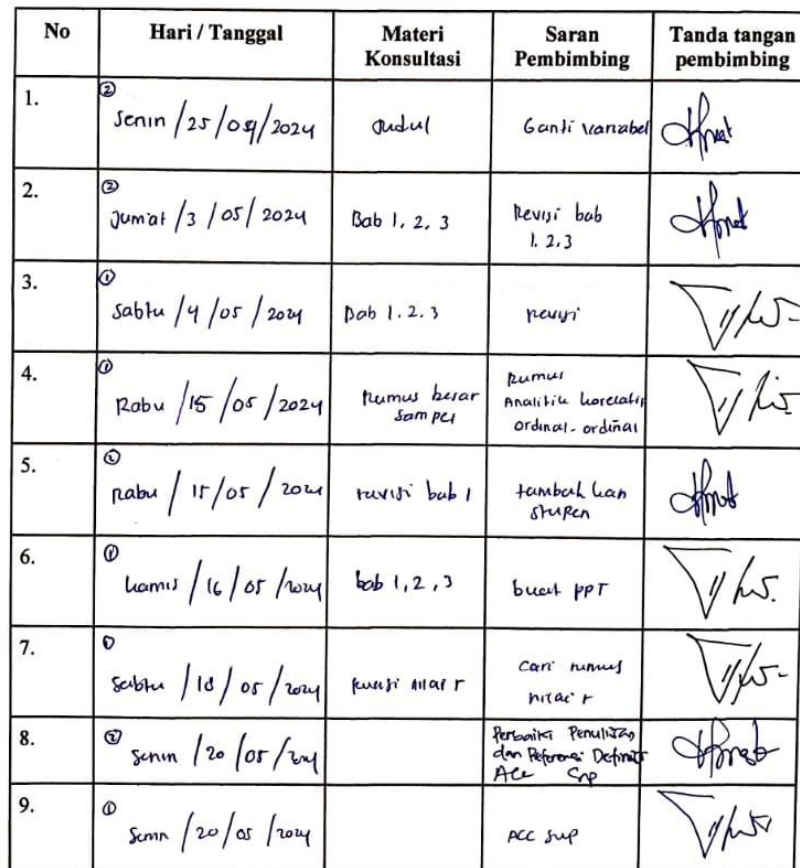 No Hari / Tanggal Materi Konsultasi Saran Pembimbing Tanda tangan pembimbing
1. ② Senin / 25 / / 2024 Judul Ganti variabel
2. ② Jum'at / 3 / 05 / 2024 Bab 1, 2, 3 Revisi bab
1. 2. 3
3. ① Sabtu / 4 / 05 / 2024 Bab 1. 2. 3 revisi
4. ① Rabu / 15 / 05 / 2024 Rumus besar
sampel
Rumus
Analitik korelatif
ordinal - ordinal
5. ② Rabu / 15 / 05 / 2024 revisi bab 1 tambah kan
stupen
6. ① kamis / 16 / 05 / 2024 bab 1, 2, 3 buat PPT
7. ① Sabtu / 18 / 05 / 2024 nilai r Cari rumus
nilai r
8. ② Senin / 20 / 05 / 2024 Perbaiki Penulisan
dan Referensi
Acc
9. ① Senin / 20 / 05 / 2024 ACC sup